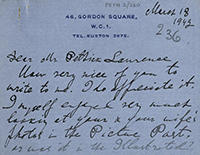 PETH 2/260
46, GORDON SQUARE,
W.C.1.
TEL. EUSTON 2675.
March 18
1942
236
Dear Mr Pethick Lawrence
How very nice of you to
write to me! I do appreciate it.
I myself enjoyed very much
looking at your & your wife's
photos in the Picture Post
or was it in the Illustrated?